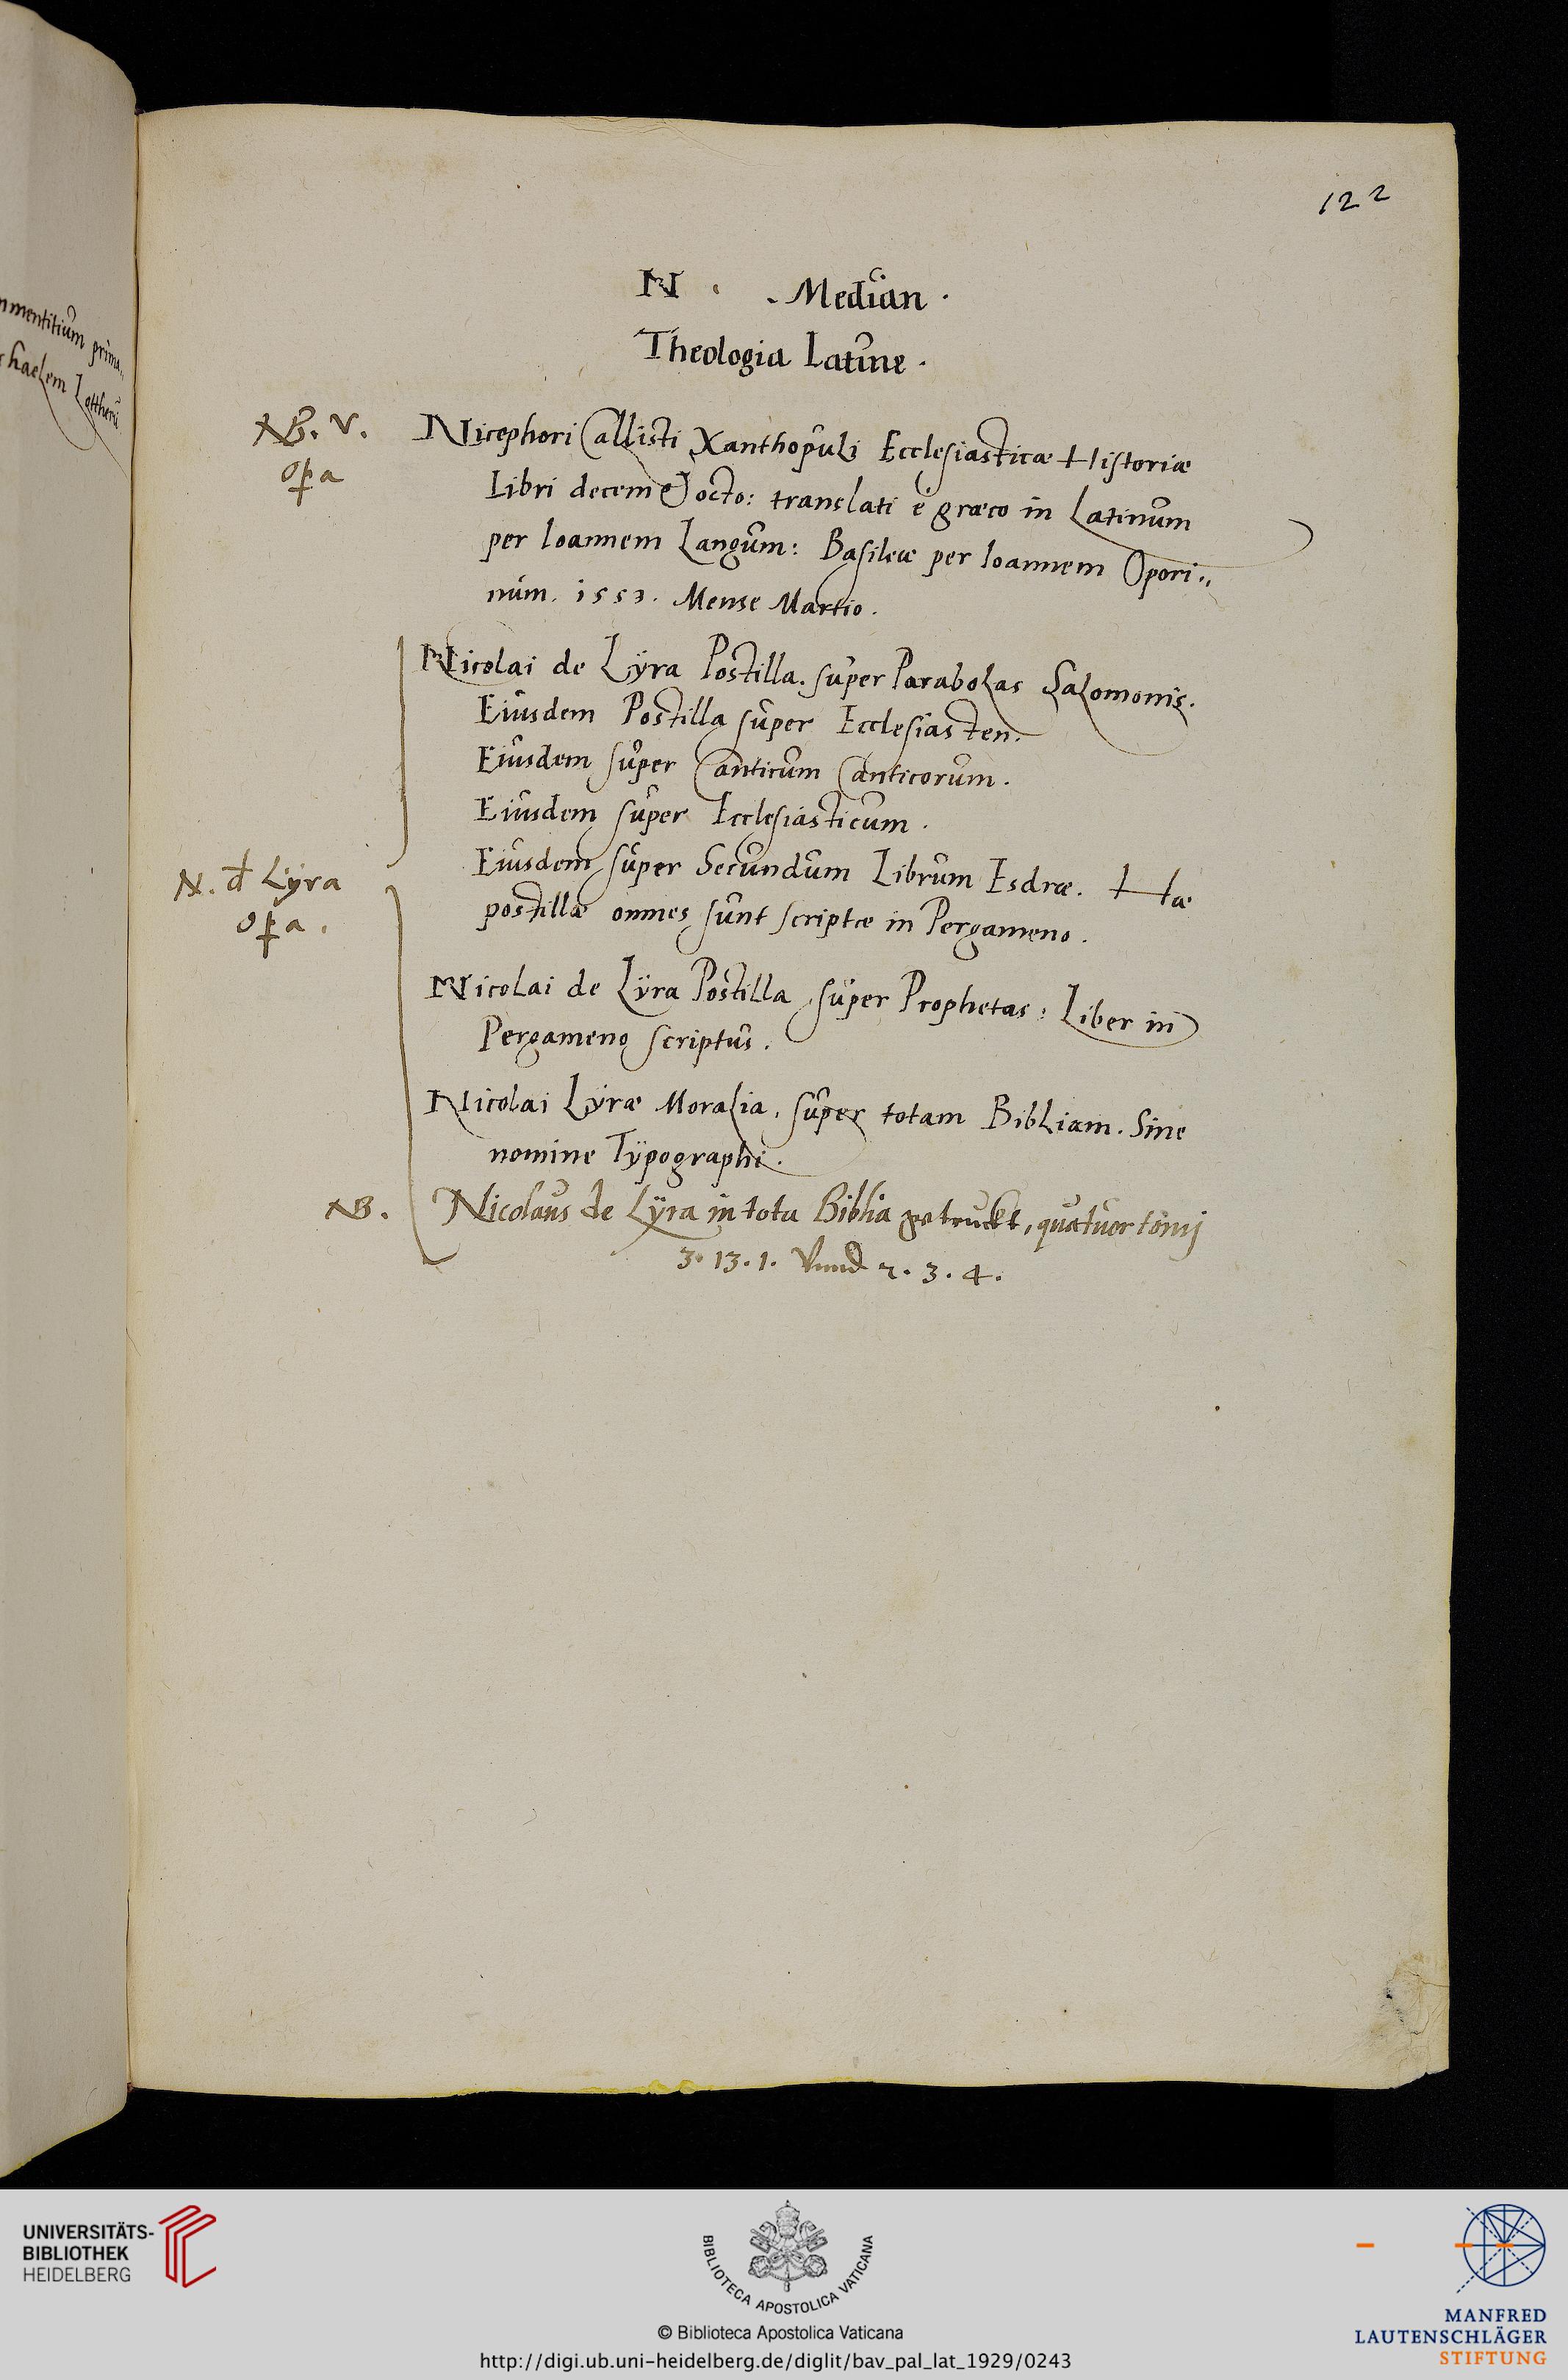 mmentitium prima„
chaelem Lottherū
122
N . . Median .
Theologia Latine .
NB. V.
opa
Nicephori Callisti Xanthopuli Ecclesiasticæ Historiæ
Libri decem & octo: translati è græco in Latinum
per Ioannem Langum: Basileæ per Ioannem Opori„
num. 1553. Mense Martio.
Nicolai de Lÿra Postilla. super Parabolas Salomonis.
Eiusdem Postilla super Ecclesiasten.
Eiusdem super Canticum Canticorum.
Eiusdem super Ecclesiasticum.
Eiusdem super Secundum Librum Esdræ. Hæ
postillæ omnes sunt scriptæ in Pergameno.
N. d Lÿra
opa.
Nicolai de Lÿra Postilla super Prophetas: Liber in
Pergameno scriptus.
Nicolai Lÿræ Moralia, super totam Bibliam. Sine
nomine Tÿpographi.
NB.
Nicolaus de Lÿra in tota Biblia getruckt, quatuor tomj
3. 13. 1. Vnnd 2. 3. 4.
UNIVERSITÄTS-
BIBLIOTHEK
HEIDELBERG
BIBLIOTECA APOSTOLICA VATICANA
© Biblioteca Apostolica Vaticana
http://digi.ub.uni-heidelberg.de/diglit/bav_pal_lat_1929/0243
MANFRED
LAUTENSCHLÄGER
STIFTUNG